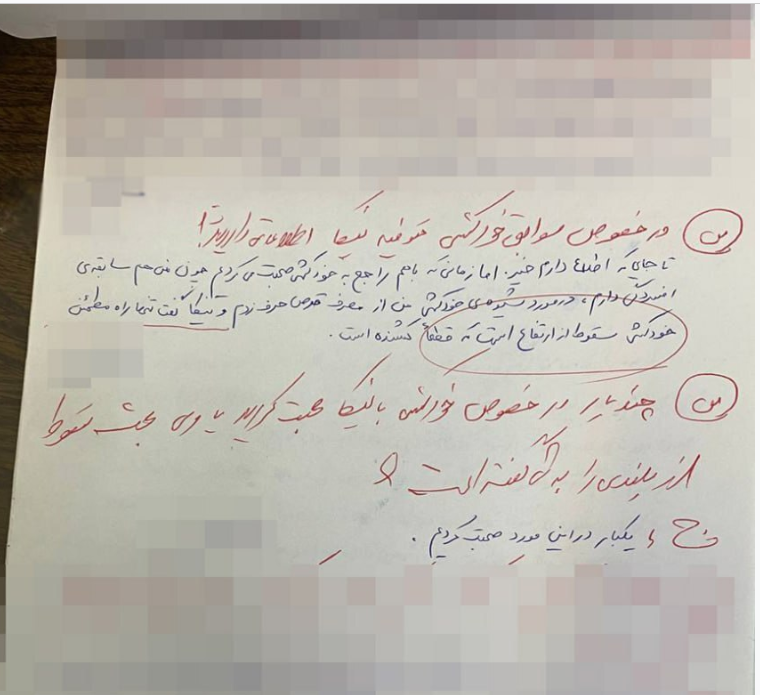 س در خصوص سوابق خودکشی متوفیه نیکا اطلاعاتی دارید؟
تا جایی که اطلاع دارم خیر. اما زمانی که باهم راجع به خودکشی صحبت می کردیم چون من هم سابقه ی
افسردگی دارم، در مورد شیوه ی خودکشی من از مصرف قرص حرف زدم و نیکا گفت تنها راه مطمئن
خودکشی سقوط از ارتفاع است که قطعاً کشنده است.
س چند بار در خصوص خودکشی با نیکا صحبت کردید یا وی بحث سقوط
از بلندی را به شما گفته است؟
ج، یکبار در این مورد صحبت کردیم.